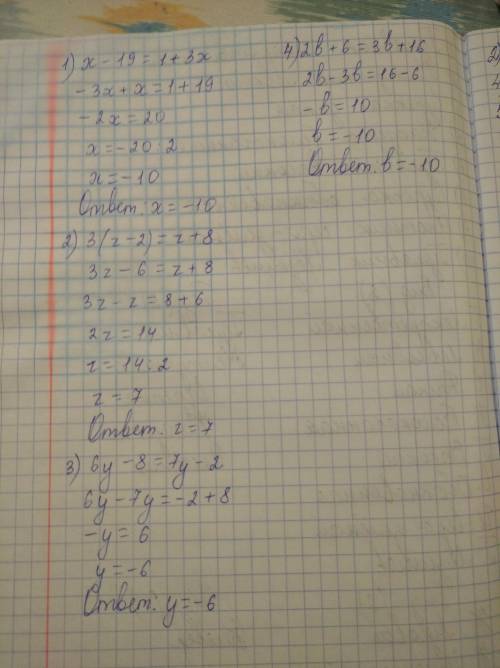 1) x - 19 = 1 + 3x
-3x + x = 1 + 19
-2x = 20
x = -20 : 2
x = -10
Ответ: x = -10
2) 3(z - 2) = z + 8
3z - 6 = z + 8
3z - z = 8 + 6
2z = 14
z = 14 : 2
z = 7
Ответ: z = 7
3) 6y - 8 = 7y - 2
6y - 7y = -2 + 8
-y = 6
y = -6
Ответ: y = -6
4) 2b + 6 = 3b + 16
2b - 3b = 16 - 6
-b = 10
b = -10
Ответ: b = -10
2)